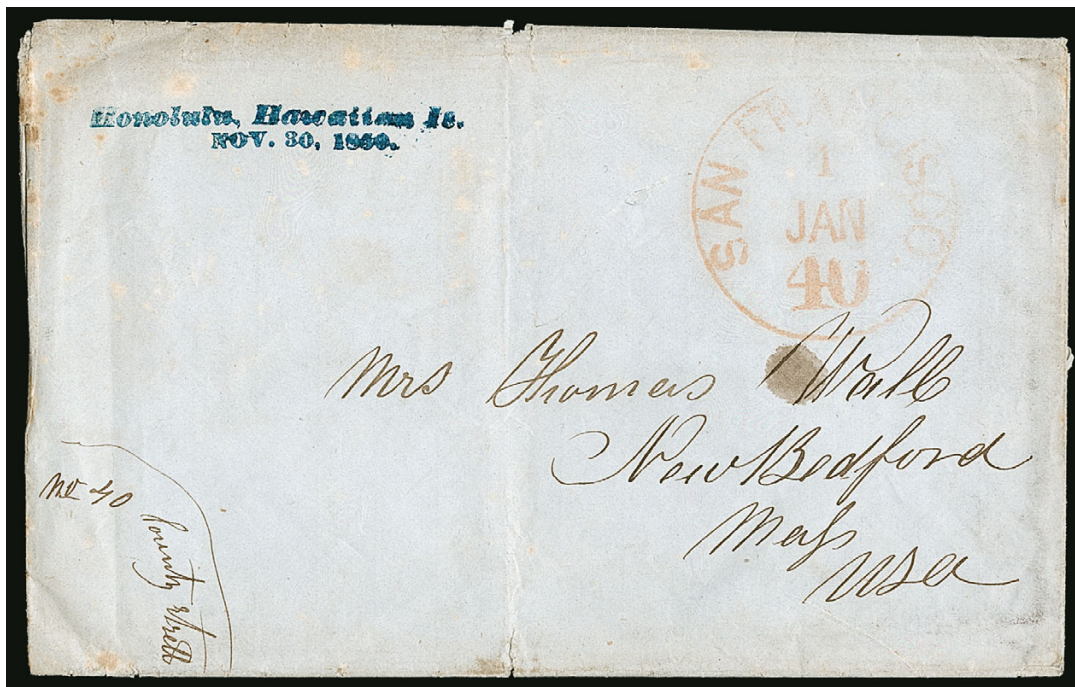 Honolulu, Hawaiian Is.
NOV. 30, 1850.
SAN FRANCISCO.
1
JAN
40
Mrs Thomas Wall
New Bedford
Mass
USA
No 40
County Street